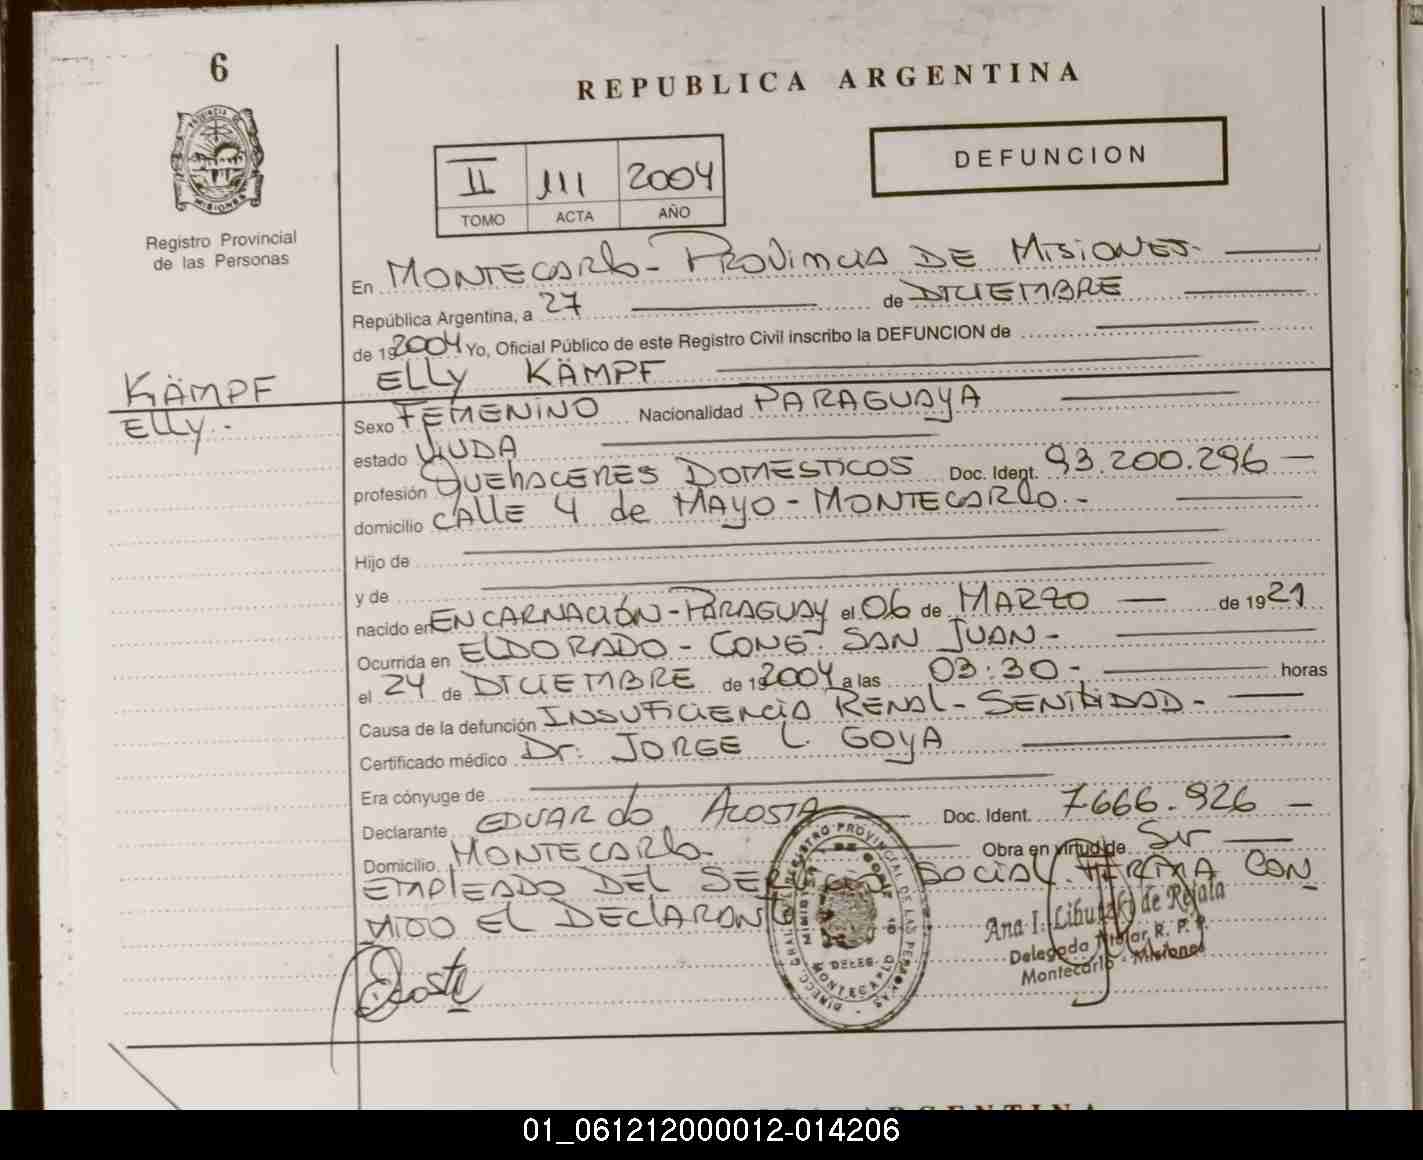 6
REPUBLICA ARGENTINA
DEFUNCION
II 111 2004
TOMO ACTA AÑO
PROVINCIA DE
MISIONES
Registro Provincial
de las Personas
En MONTECARLO - PROVINCIA DE MISIONES.
República Argentina, a 27 de DICIEMBRE
de 192004 Yo, Oficial Público de este Registro Civil inscribo la DEFUNCION de
ELLY KÄMPF
KÄMPF
ELLY.
Sexo FEMENINO Nacionalidad PARAGUAYA
estado VIUDA
profesión QUEHACERES DOMESTICOS Doc. Ident. 93.200.296 —
domicilio CALLE 4 de MAYO - MONTECARLO. -
Hijo de
y de
nacido en ENCARNACIÓN - PARAGUAY el 06 de MARZO — de 1921
Ocurrida en ELDORADO - CONE. SAN JUAN -
el 24 de DICIEMBRE de 192004 a las 03:30 - horas
Causa de la defunción INSUFICIENCIA RENAL - SENILIDAD -
Certificado médico Dr: JORGE L. GOYA
Era cónyuge de
Declarante EDUARDO ACOSTA Doc. Ident. 7666.926 —
Domicilio MONTECARLO. Obra en virtud de SER
EMPLEADO DEL SERVICIO SOCIAL. FIRMA CON
MIGO EL DECLARANTE
DIRECC. GRAL. DEL REGISTRO PROVINCIAL DE LAS PERSONAS
DELEG.
MONTECARLO
Ana I. de
Delegada Titular, R. P. P.
Montecarlo - Misiones
ARGENTINA
01_061212000012-014206